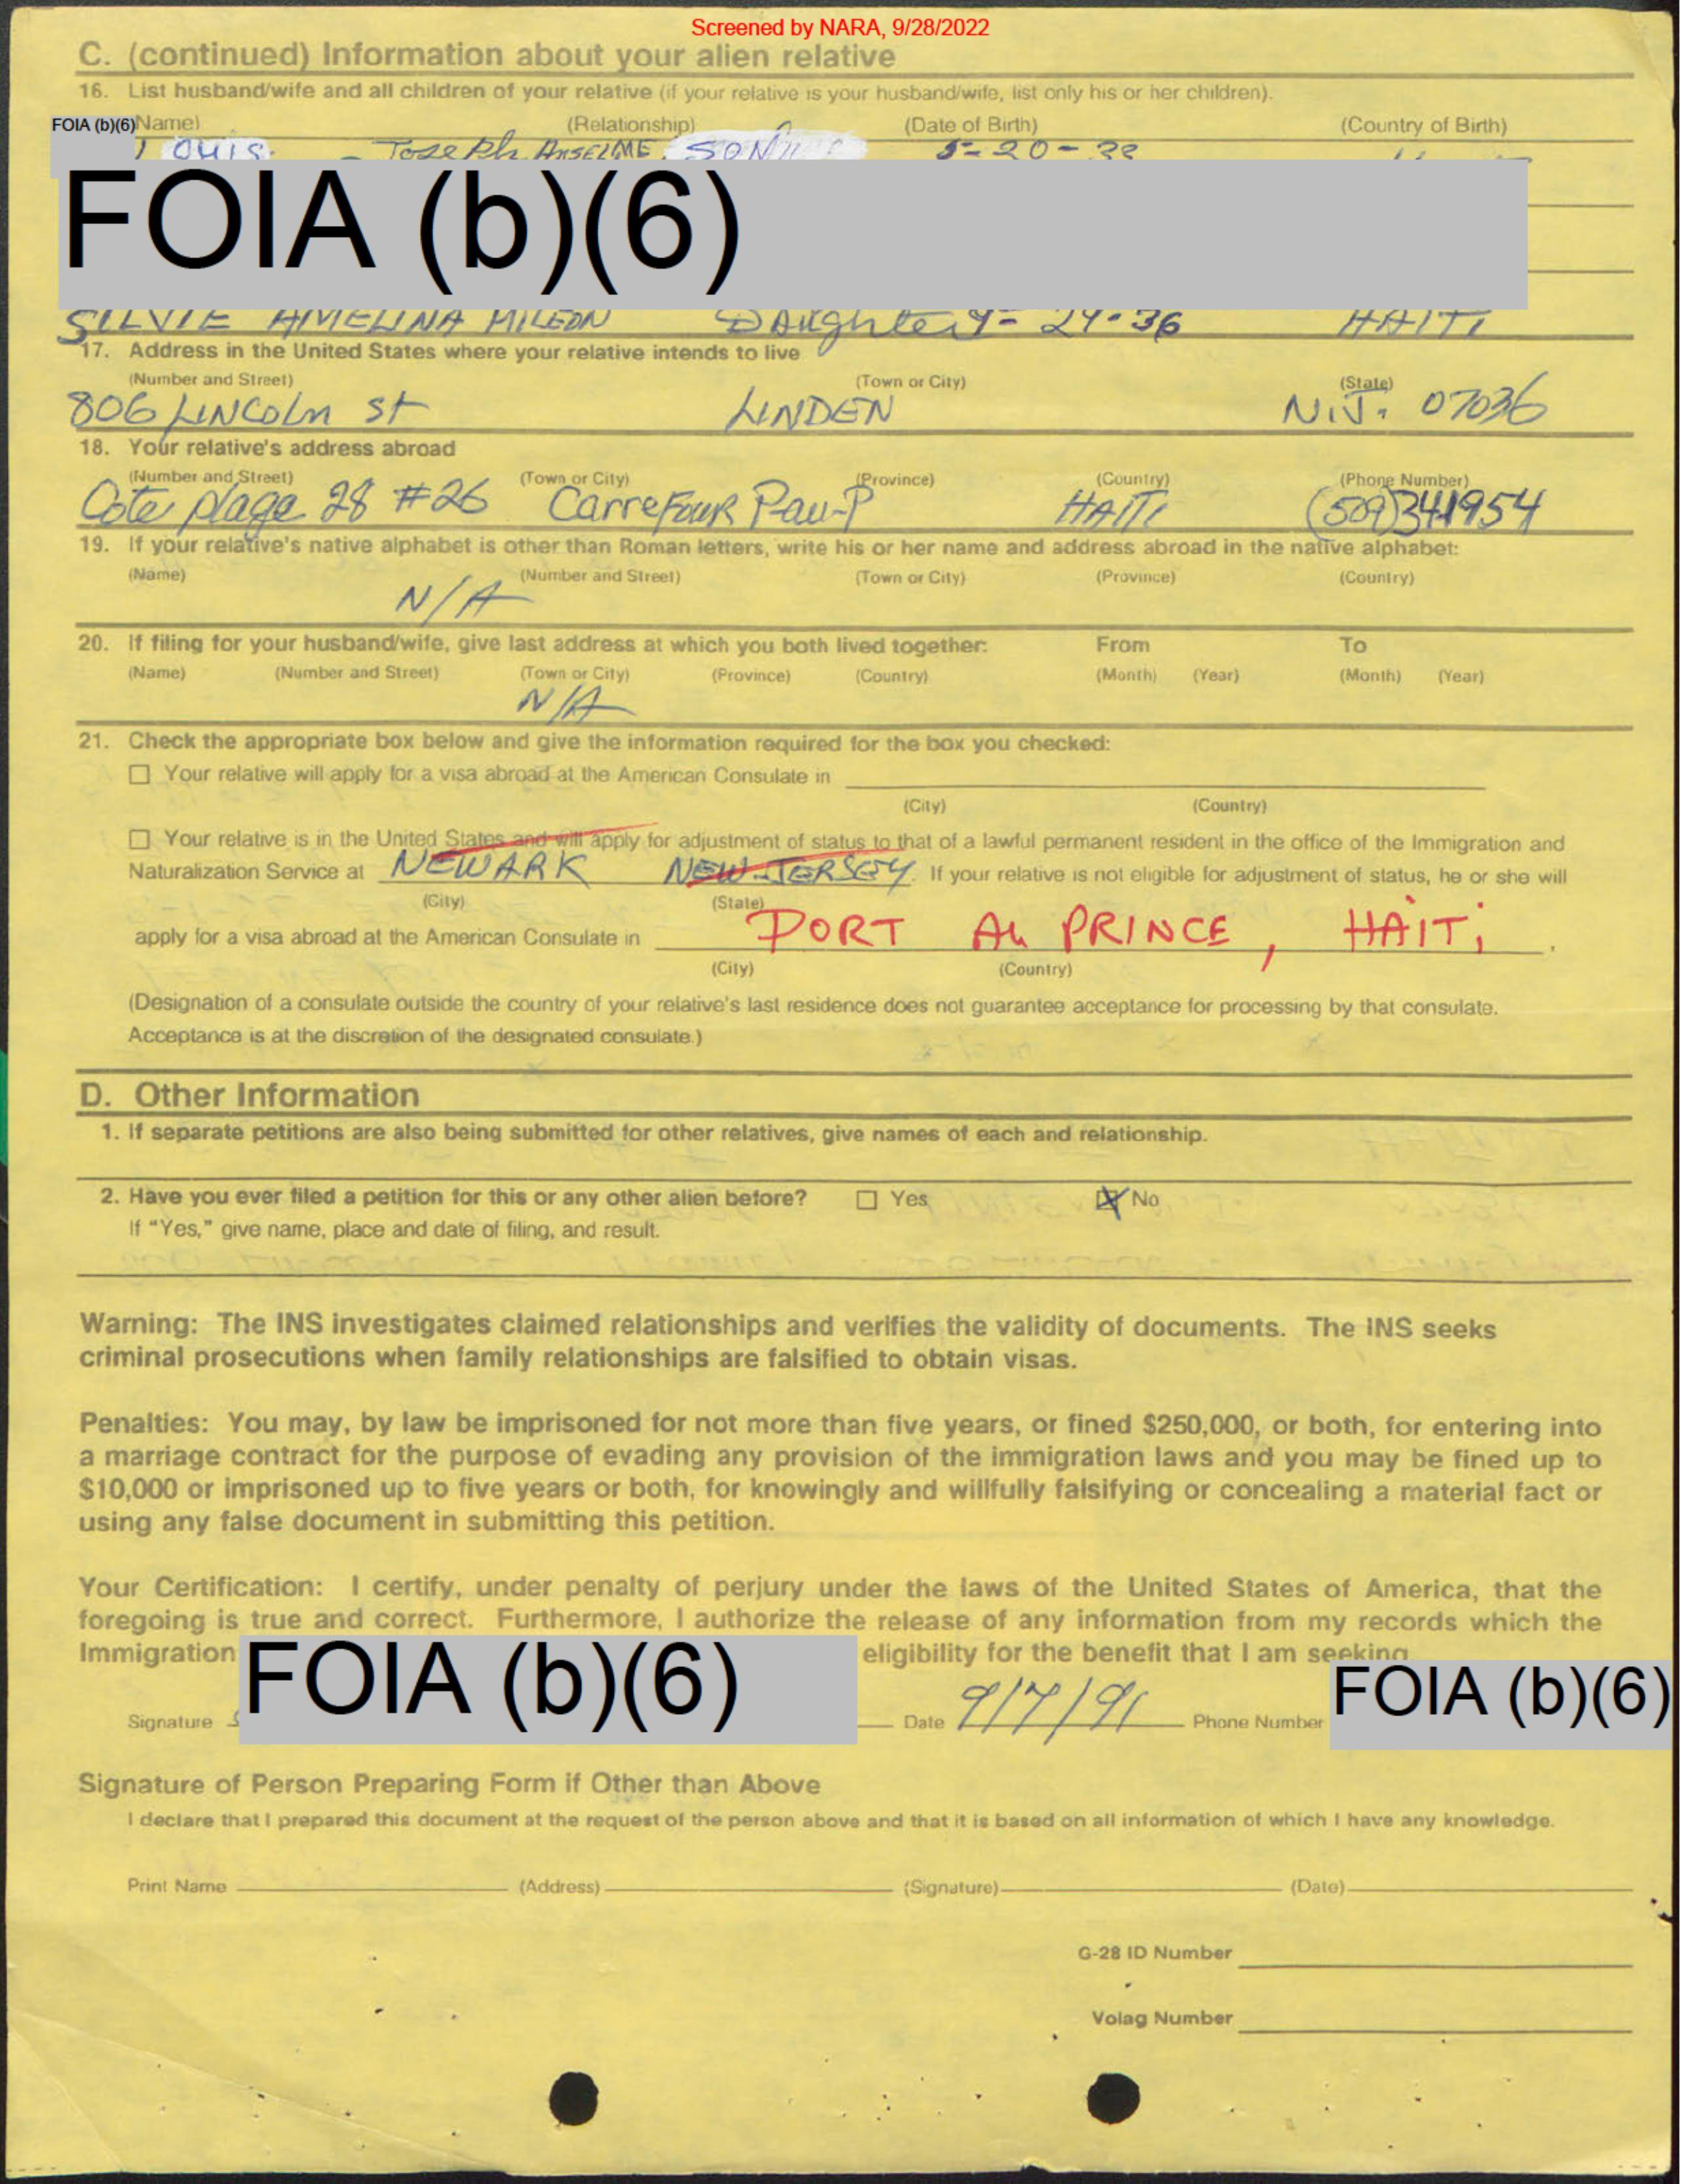 Screened by NARA, 9/28/2022
C. (continued) Information about your alien relative
16. List husband/wife and all children of your relative (if your relative is your husband/wife, list only his or her children).
FOIA (b)(6) Name) (Relationship) (Date of Birth) (Country of Birth)
LOUIS. Joseph ANSELME SON 5-20-
FOIA (b)(6)
SILVIE AMELINA MILEON Daughter 9-24-36 HAITI
17. Address in the United States where your relative intends to live
(Number and Street) (Town or City) (State)
806 LINCOLN St LINDEN N.J. 07036
18. Your relative's address abroad
(Number and Street) (Town or City) (Province) (Country) (Phone Number)
Cote plage 28 #26 CarreFour Pau-P HAITI (509)341954
19. If your relative's native alphabet is other than Roman letters, write his or her name and address abroad in the native alphabet:
(Name) (Number and Street) (Town or City) (Province) (Country)
N/A
20. If filing for your husband/wife, give last address at which you both lived together: From To
(Name) (Number and Street) (Town or City) (Province) (Country) (Month) (Year) (Month) (Year)
N/A
21. Check the appropriate box below and give the information required for the box you checked:
☐ Your relative will apply for a visa abroad at the American Consulate in
(City) (Country)
☐ Your relative is in the United States and will apply for adjustment of status to that of a lawful permanent resident in the office of the Immigration and
Naturalization Service at NEWARK NEW-JERSEY. If your relative is not eligible for adjustment of status, he or she will
(City) (State)
apply for a visa abroad at the American Consulate in PORT Au PRINCE, HAITi.
(City) (Country)
(Designation of a consulate outside the country of your relative's last residence does not guarantee acceptance for processing by that consulate.
Acceptance is at the discretion of the designated consulate.)
D. Other Information
1. If separate petitions are also being submitted for other relatives, give names of each and relationship.
2. Have you ever filed a petition for this or any other alien before? ☐ Yes ☒ No
If "Yes," give name, place and date of filing, and result.
Warning: The INS investigates claimed relationships and verifies the validity of documents. The INS seeks
criminal prosecutions when family relationships are falsified to obtain visas.
Penalties: You may, by law be imprisoned for not more than five years, or fined $250,000, or both, for entering into
a marriage contract for the purpose of evading any provision of the immigration laws and you may be fined up to
$10,000 or imprisoned up to five years or both, for knowingly and willfully falsifying or concealing a material fact or
using any false document in submitting this petition.
Your Certification: I certify, under penalty of perjury under the laws of the United States of America, that the
foregoing is true and correct. Furthermore, I authorize the release of any information from my records which the
Immigration FOIA (b)(6) eligibility for the benefit that I am seeking
Signature Date 9/7/91 Phone Number FOIA (b)(6)
Signature of Person Preparing Form if Other than Above
I declare that I prepared this document at the request of the person above and that it is based on all information of which I have any knowledge.
Print Name (Address) (Signature) (Date)
G-28 ID Number
Volag Number